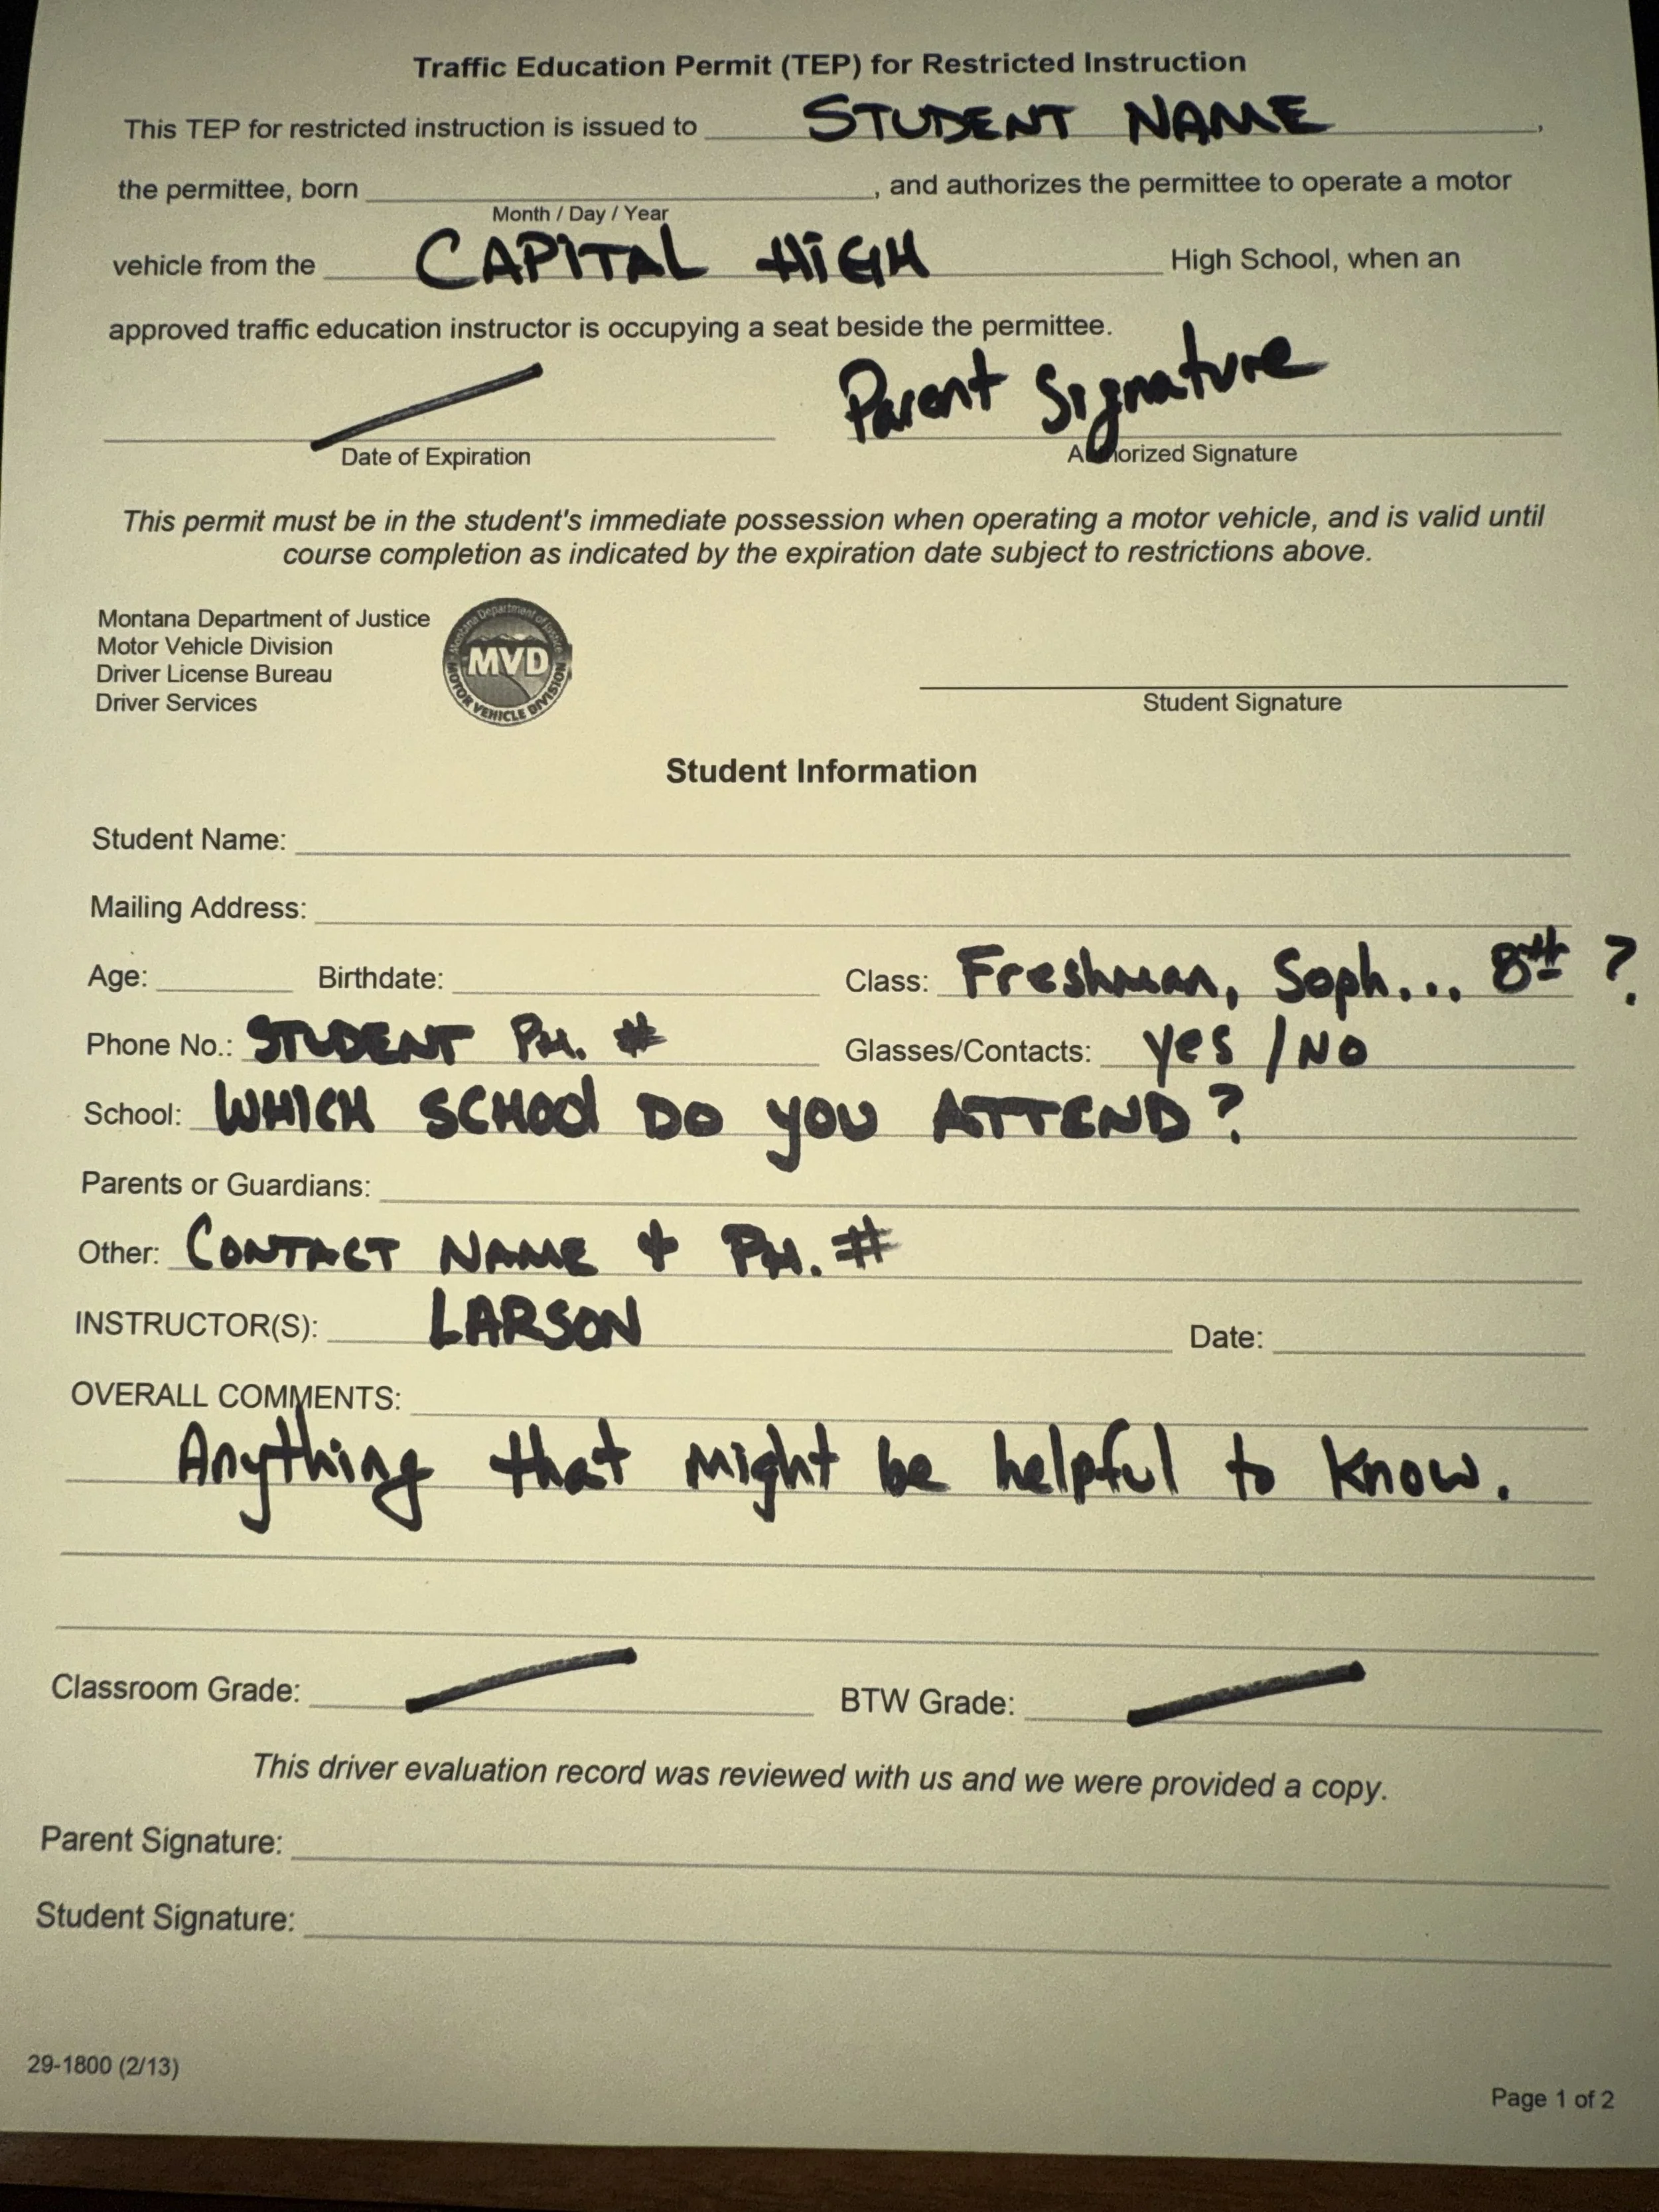 Traffic Education Permit (TEP) for Restricted Instruction
This TEP for restricted instruction is issued to STUDENT NAME,
the permittee, born , and authorizes the permittee to operate a motor
Month / Day / Year
vehicle from the CAPITAL HIGH High School, when an
approved traffic education instructor is occupying a seat beside the permittee.
Parent Signature
Date of Expiration Authorized Signature
This permit must be in the student's immediate possession when operating a motor vehicle, and is valid until
course completion as indicated by the expiration date subject to restrictions above.
Montana Department of Justice
Motor Vehicle Division
Driver License Bureau
Driver Services
Montana Department of Justice
MVD
MOTOR VEHICLE DIVISION
Student Signature
Student Information
Student Name:
Mailing Address:
Age: Birthdate: Class: Freshman, Soph... 8th ?
Phone No.: STUDENT PH. # Glasses/Contacts: yes / NO
School: WHICH SCHOOL DO YOU ATTEND?
Parents or Guardians:
Other: CONTACT NAME & PH. #
INSTRUCTOR(S): LARSON Date:
OVERALL COMMENTS:
Anything that might be helpful to know.
Classroom Grade: BTW Grade:
This driver evaluation record was reviewed with us and we were provided a copy.
Parent Signature:
Student Signature:
29-1800 (2/13)
Page 1 of 2